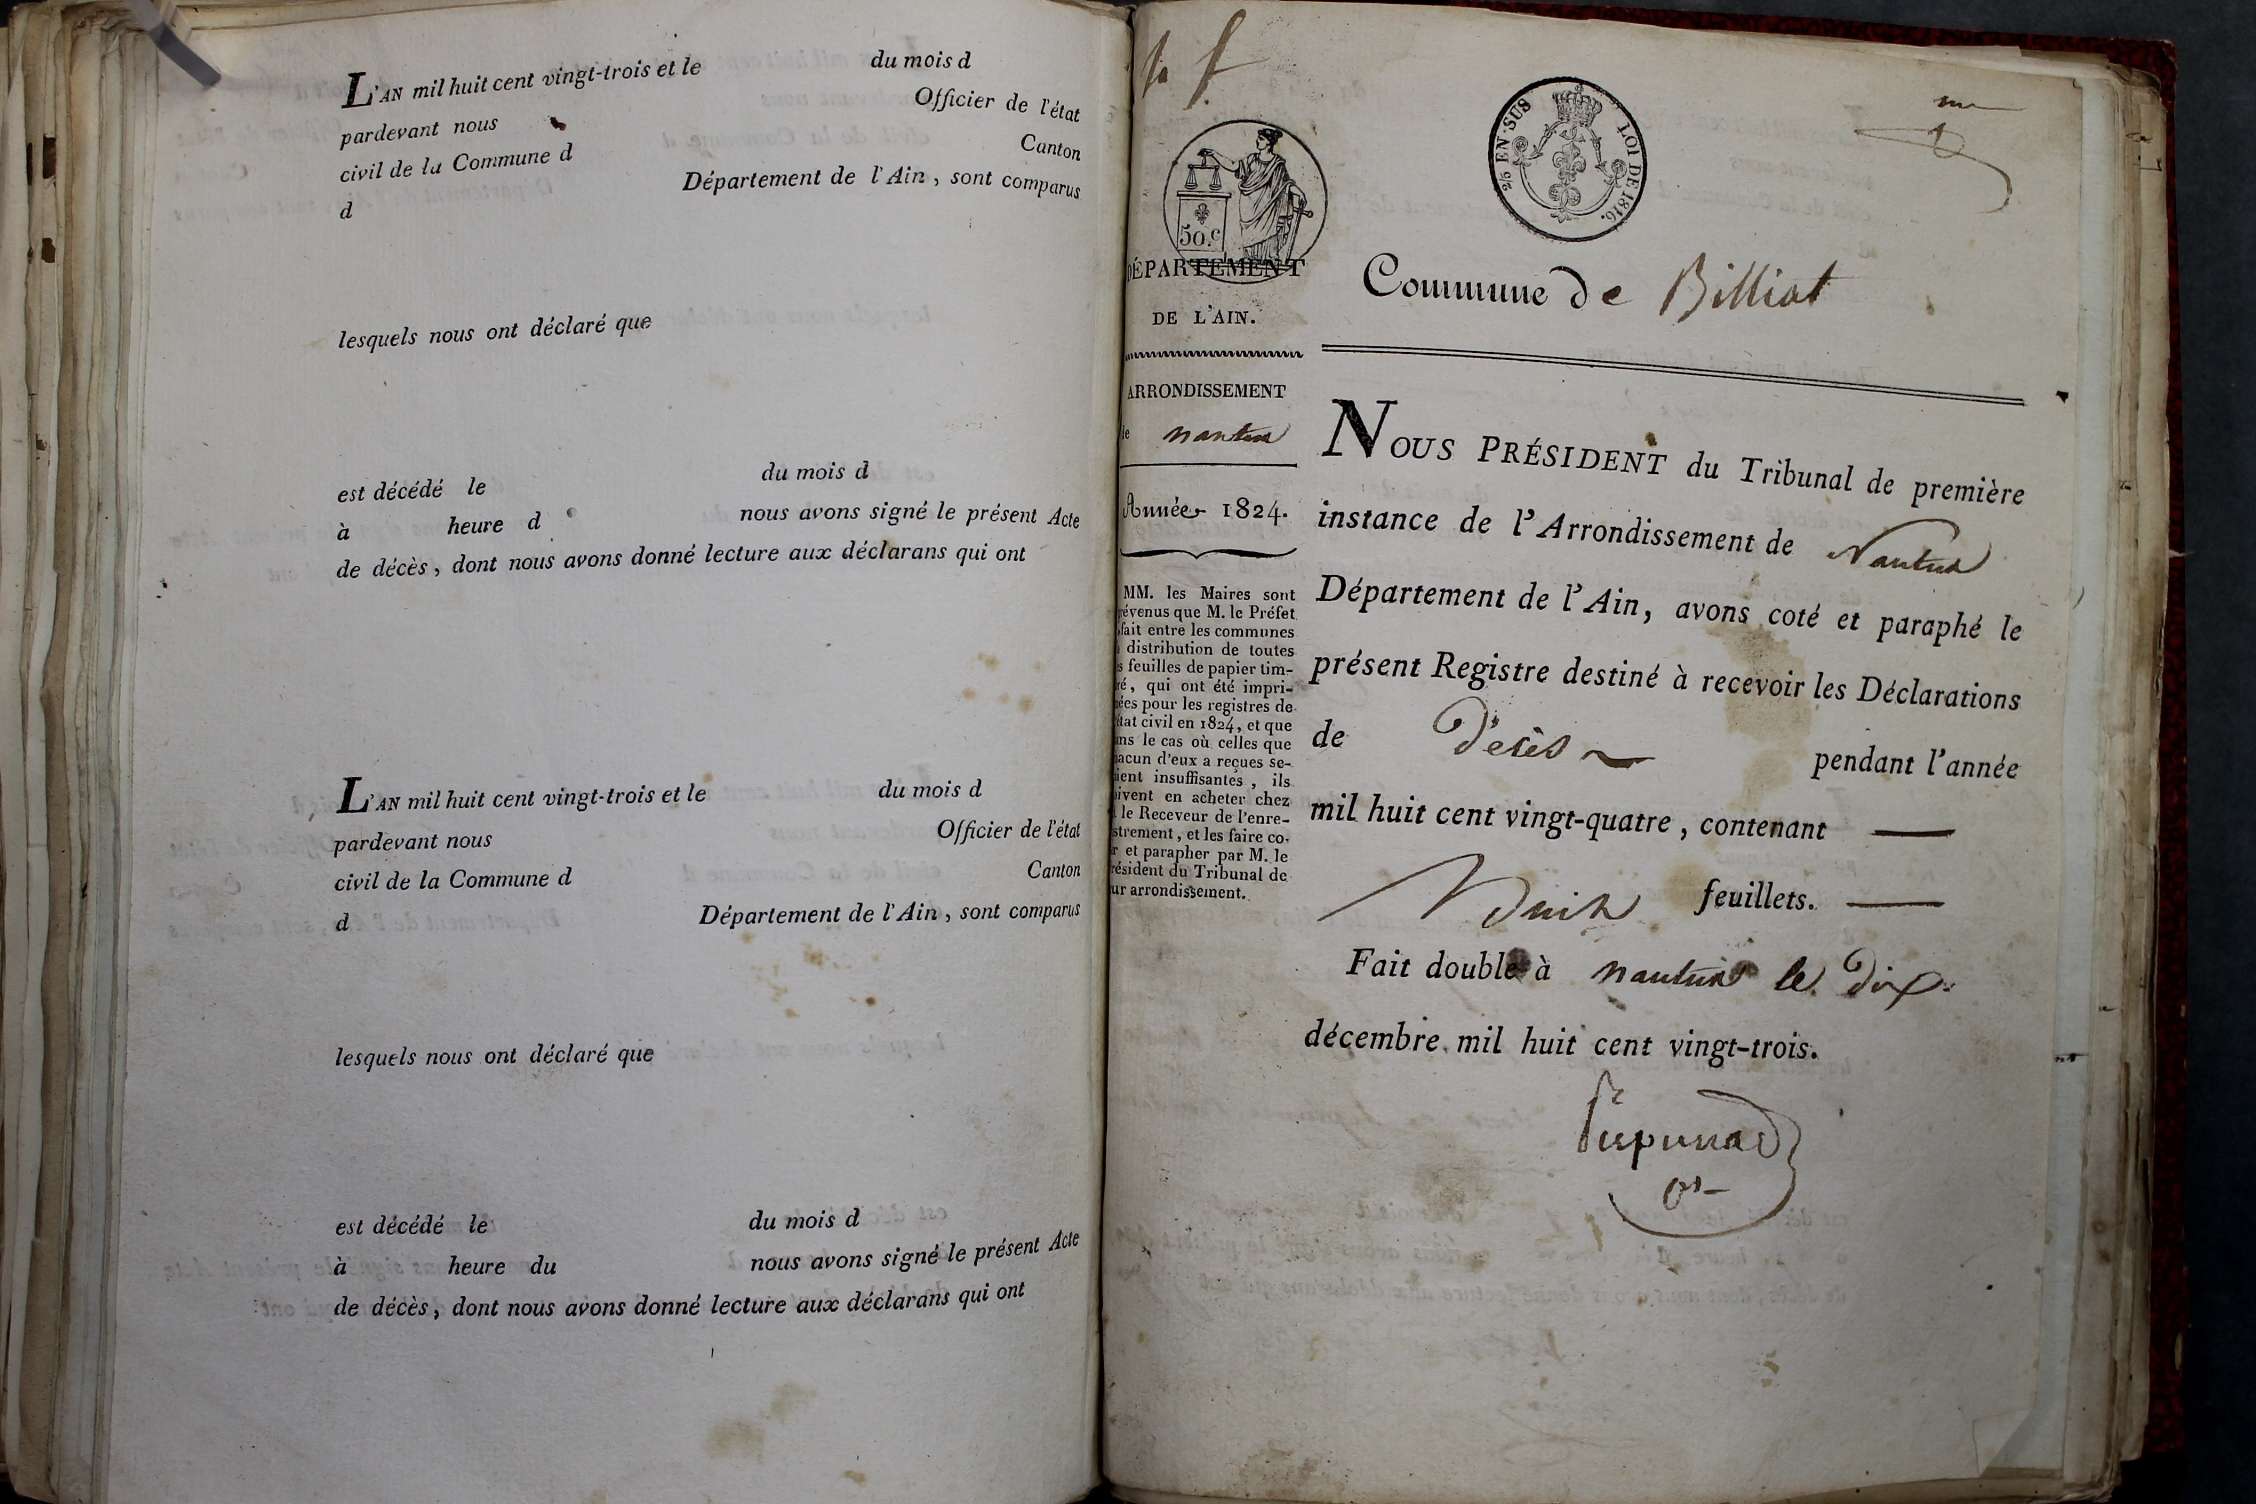 L'AN mil huit cent vingt-trois et le du mois d
pardevant nous Officier de l'état
civil de la Commune d Canton
d Département de l'Ain, sont comparus
lesquels nous ont déclaré que
est décédé le du mois d
à heure d nous avons signé le présent Acte
de décès, dont nous avons donné lecture aux déclarans qui ont
L'AN mil huit cent vingt-trois et le du mois d
pardevant nous Officier de l'état
civil de la Commune d Canton
d Département de l'Ain, sont comparus
lesquels nous ont déclaré que
est décédé le du mois d
à heure du nous avons signé le présent Acte
de décès, dont nous avons donné lecture aux déclarans qui ont
50.c
2/5 EN SUS LOI DE 1816.
DÉPARTEMENT
DE L'AIN.
ARRONDISSEMENT
de nantua
Année 1824.
MM. les Maires sont
prévenus que M. le Préfet
fait entre les communes
distribution de toutes
feuilles de papier tim-
bré, qui ont été impri-
mées pour les registres de
état civil en 1824, et que
dans le cas où celles que
chacun d'eux a reçues se-
raient insuffisantes, ils
doivent en acheter chez
le Receveur de l'enre-
gistrement, et les faire co-
et parapher par M. le
Président du Tribunal de
leur arrondissement.
Commune de Billiat
NOUS PRÉSIDENT du Tribunal de première
instance de l'Arrondissement de Nantua
Département de l'Ain, avons coté et paraphé le
présent Registre destiné à recevoir les Déclarations
de Décès pendant l'année
mil huit cent vingt-quatre, contenant
huit feuillets.
Fait double à nantua le dix
décembre mil huit cent vingt-trois.